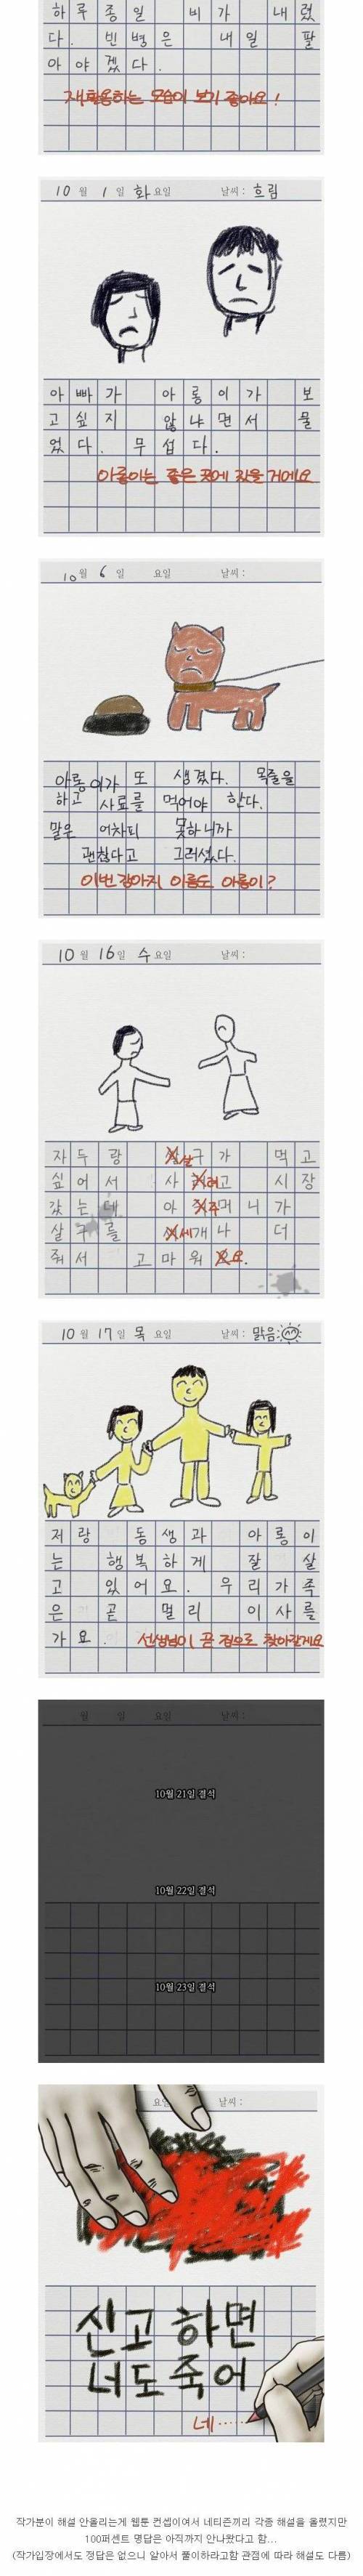 하루종일 비가 내렸
다. 빈병은 내일 팔
아야겠다.
재활용하는 모습이 보기 좋아요!
10월 1일 화요일 날씨: 흐림
아빠가 아롱이가 보
고싶지 않냐면서 물
었다. 무섭다.
아롱이는 좋은 곳에 갔을 거에요
10월 6일 요일 날씨:
아롱이가 또 생겼다. 목줄을
하고 사료를 먹어야 한다.
말은 어차피 못하니까
괜찮다고 그러셨다.
이번 강아지 이름도 아롱이?
10월 16일 수요일 날씨:
자두랑 살구가 먹고
싶어서 사려고 시장
갔는데 아주머니가
살구를 세개나 더
줘서 고마워요.
10월 17일 목요일 날씨: 맑음
저랑 동생과 아롱이
는 행복하게 잘 살
고 있어요. 우리가족
은 곧 멀리 이사를
가요. 선생님이 곧 집으로 찾아갈게요
월 일 요일 날씨:
10월 21일 결석
10월 22일 결석
10월 23일 결석
요일 날씨:
신고하면
너도죽어
네……
작가분이 해설 안올리는게 웹툰 컨셉이여서 네티즌끼리 각종 해설을 올렸지만
100퍼센트 명답은 아직까지 안나왔다고 함...
(작가입장에서도 정답은 없으니 알아서 풀이하라고함 관점에 따라 해설도 다름)